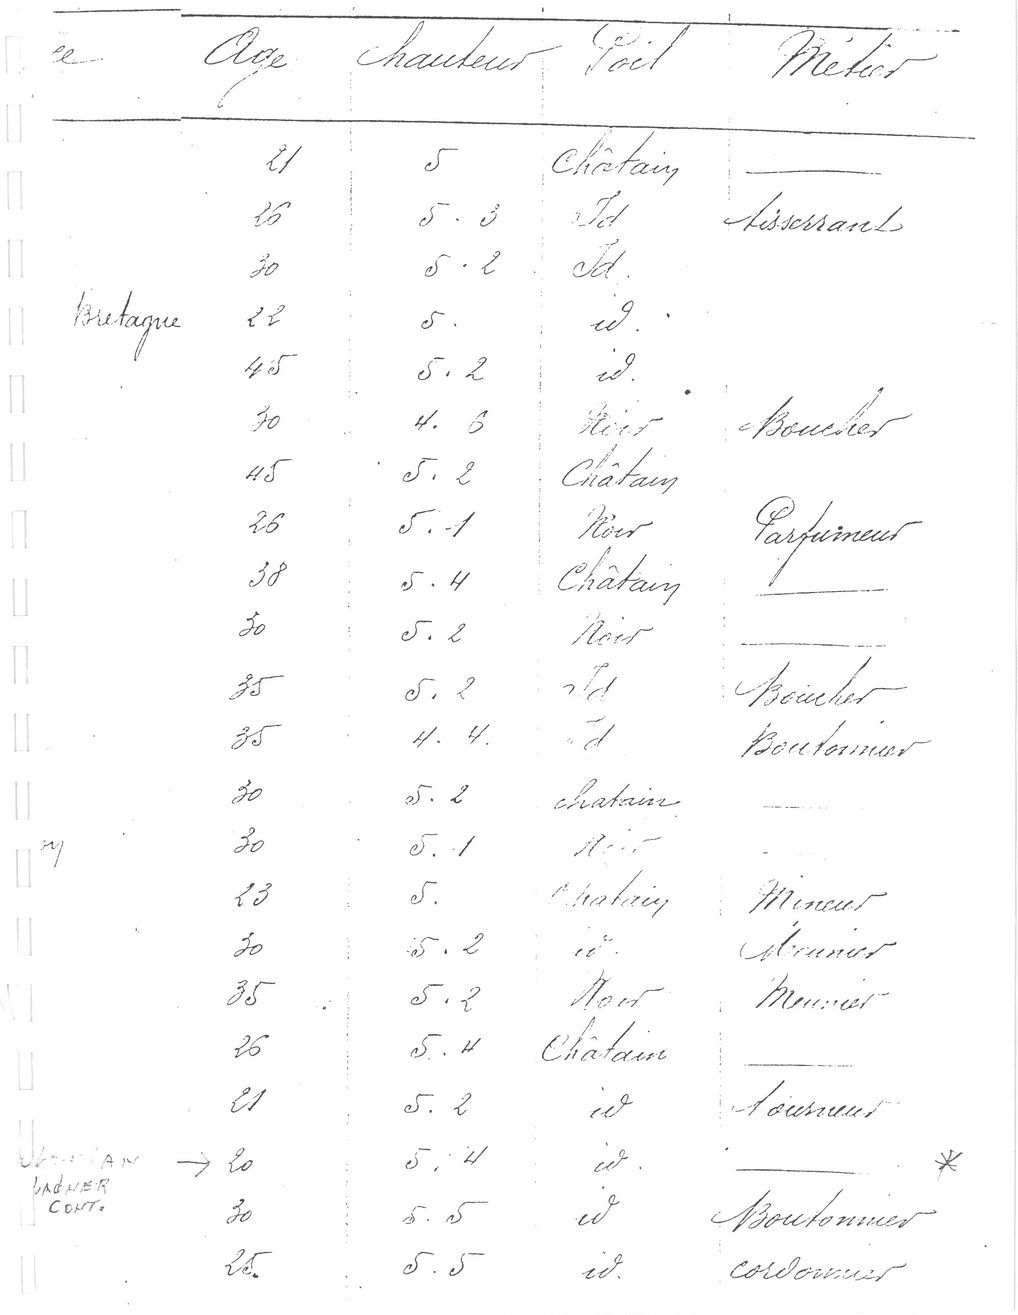 Age hauteur Poil Métier
21 5 Châtain
26 5.3 Id tisserrant
30 5.2 Id.
Bretagne 22 5. id.
45 5.2 id.
30 4.6 Noir Boucher
45 5.2 Châtain
26 5.1 Noir Parfumeur
38 5.4 Châtain
30 5.2 Noir
35 5.2 Id Boucher
35 4.4. Id Boutonnier
30 5.2 chatain
30 5.1 Noir
23 5. Chatain Mineur
30 5.2 id. Meunier
35 5.2 Noir Meunier
26 5.4 Châtain
21 5.2 id tourneur
→ 20 5.4 id. *
LAGNER
CONT.
30 5.5 id Boutonnier
25. 5.5 id. cordonnier